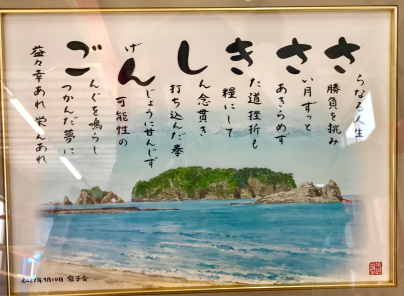 さらなる人生
勝負を挑み
さい月ずっと
あきらめず
きた道挫折も
糧にして
しん念貫き
打ち込んだ拳
げんじょうに甘んじず
可能性の
ごんぐを鳴らし
つかんだ夢に
益々幸あれ
9月10日